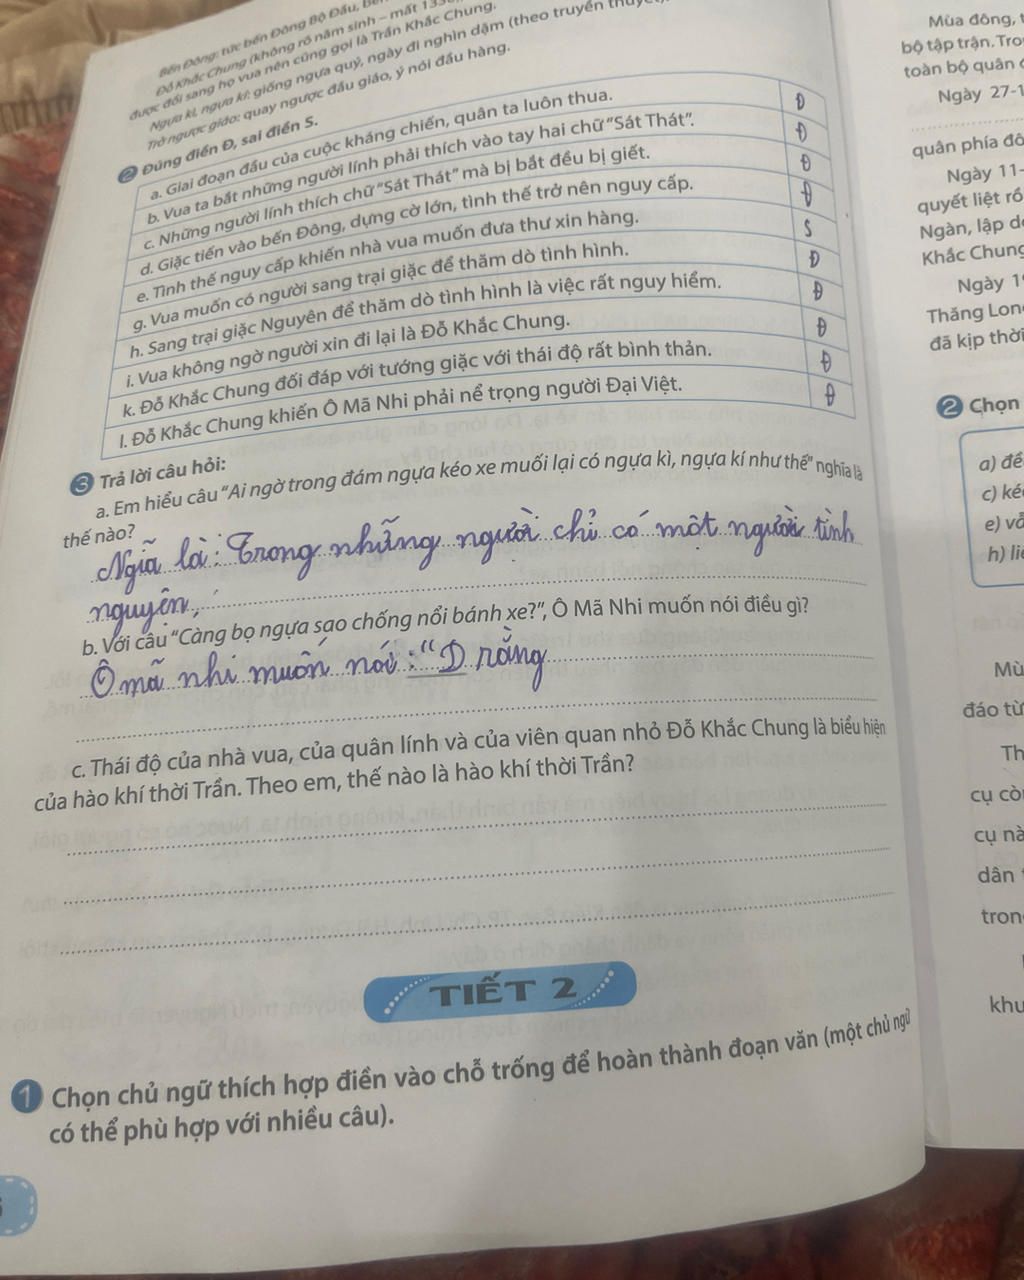 Bến Đông: tức bến Đông Bộ Đầu,
Đỗ Khắc Chung (không rõ năm sinh – mất
được đổi sang họ vua nên cũng gọi là Trần Khắc Chung.
Ngựa kì, ngựa kí: giống ngựa quý, ngày đi nghìn dặm (theo truyền thuyết).
Trở ngược giáo: quay ngược đầu giáo, ý nói đầu hàng.
2 Đúng điền Đ, sai điền S.
a. Giai đoạn đầu của cuộc kháng chiến, quân ta luôn thua. Đ
b. Vua ta bắt những người lính phải thích vào tay hai chữ "Sát Thát". Đ
c. Những người lính thích chữ "Sát Thát" mà bị bắt đều bị giết. Đ
d. Giặc tiến vào bến Đông, dựng cờ lớn, tình thế trở nên nguy cấp. Đ
e. Tình thế nguy cấp khiến nhà vua muốn đưa thư xin hàng. S
g. Vua muốn có người sang trại giặc để thăm dò tình hình. Đ
h. Sang trại giặc Nguyên để thăm dò tình hình là việc rất nguy hiểm. Đ
i. Vua không ngờ người xin đi lại là Đỗ Khắc Chung. Đ
k. Đỗ Khắc Chung đối đáp với tướng giặc với thái độ rất bình thản. Đ
l. Đỗ Khắc Chung khiến Ô Mã Nhi phải nể trọng người Đại Việt. Đ
3 Trả lời câu hỏi:
a. Em hiểu câu "Ai ngờ trong đám ngựa kéo xe muối lại có ngựa kì, ngựa kí như thế" nghĩa là
thế nào?
Ngiã là: Trong những người chỉ có một người tình
nguyện,
b. Với câu "Càng bọ ngựa sao chống nổi bánh xe?", Ô Mã Nhi muốn nói điều gì?
Ô mã nhi muốn nói: "Đ rằng
c. Thái độ của nhà vua, của quân lính và của viên quan nhỏ Đỗ Khắc Chung là biểu hiện
của hào khí thời Trần. Theo em, thế nào là hào khí thời Trần?
TIẾT 2
1 Chọn chủ ngữ thích hợp điền vào chỗ trống để hoàn thành đoạn văn (một chủ ngữ
có thể phù hợp với nhiều câu).
Mùa đông,
bộ tập trận. Tro
toàn bộ quân
Ngày 27-1
quân phía đô
Ngày 11-
quyết liệt rồ
Ngàn, lập
Khắc Chung
Ngày 1
Thăng Lon
đã kịp thời
2 Chọn
a) để
c) ké
e)
h)
Mù
đáo từ
Th
cụ cò
cụ nà
dân
tron
khu